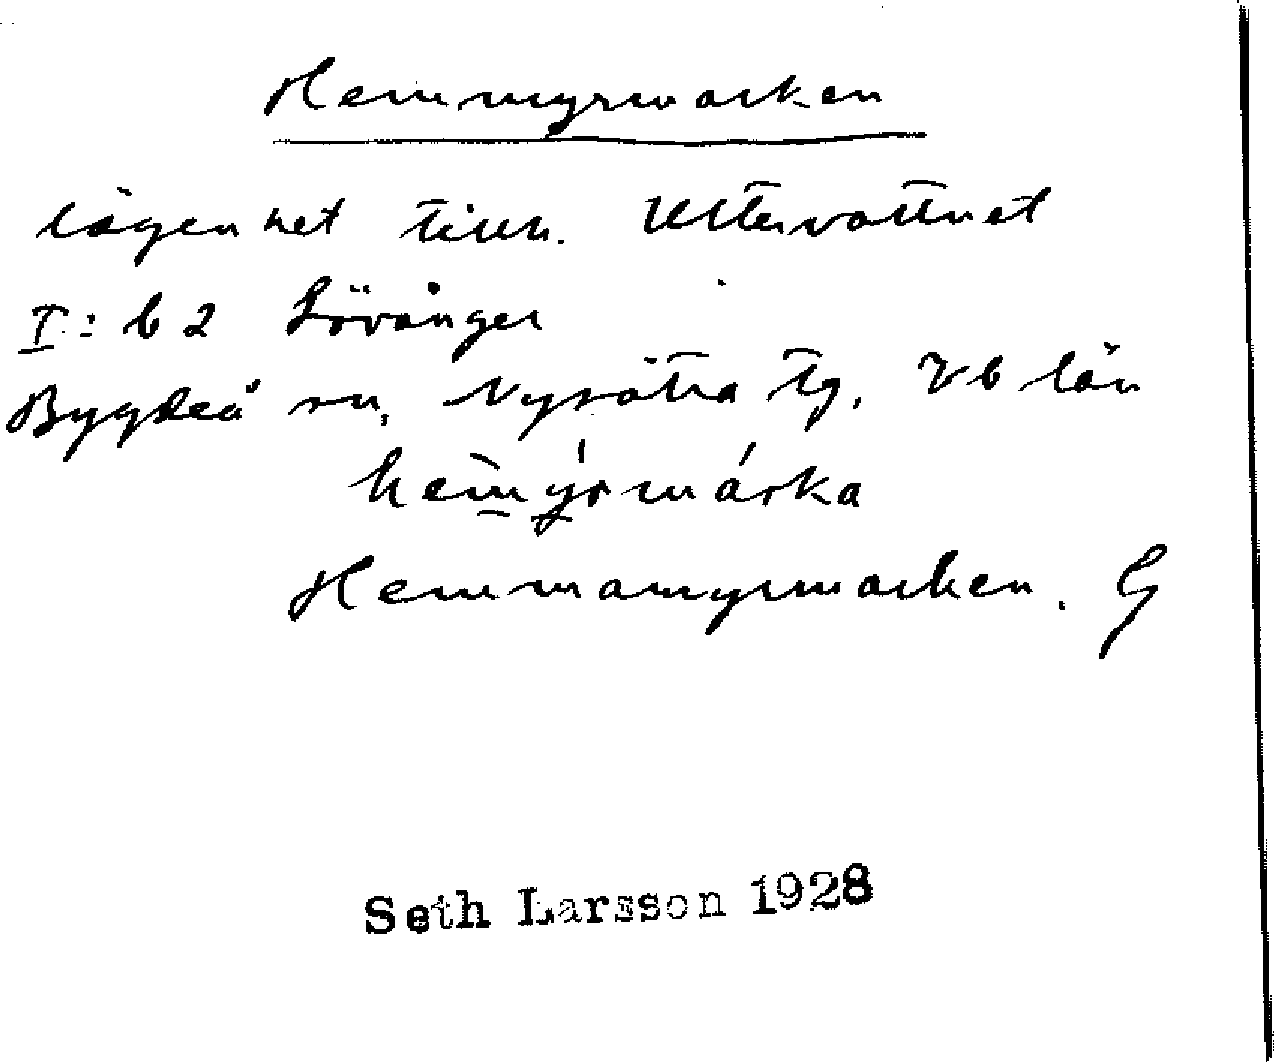 Hemmyrmarken
lägenhet tillh. Uttervattnet
I:b2 Lövånger
Bygdeå sn, Nysätra tg, Vb län
hem̀ýrmárka
Hemmamyrmarken. G
Seth Larsson 1928